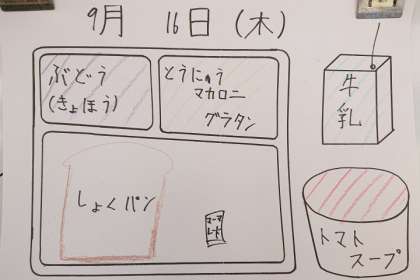 9月 16日 (木)
ぶどう
(きょほう)
とうにゅう
マカロニ
グラタン
牛
乳
しょくパン
トマト
スープ